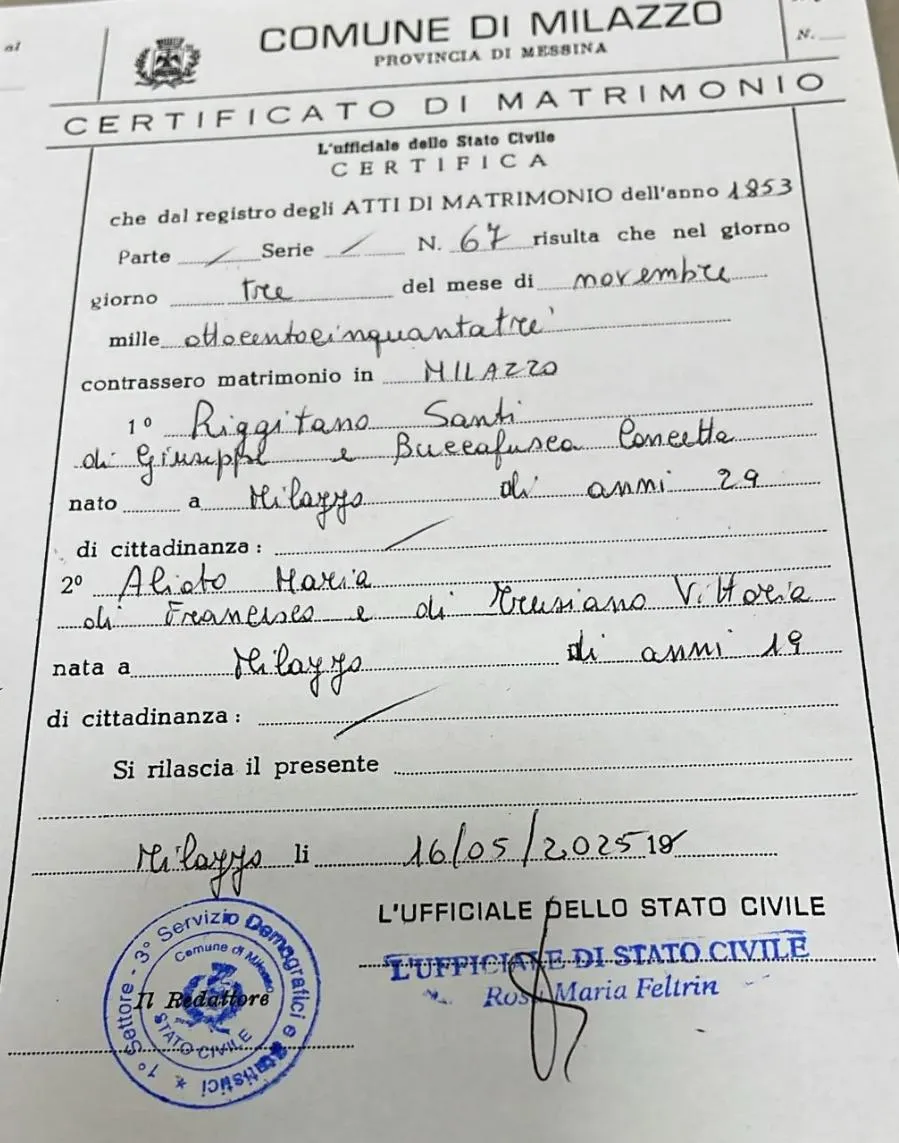 al
COMUNE DI MILAZZO
PROVINCIA DI MESSINA
N.
CERTIFICATO DI MATRIMONIO
L'ufficiale dello Stato Civile
CERTIFICA
che dal registro degli ATTI DI MATRIMONIO dell'anno 1853
Parte / Serie / N. 67 risulta che nel giorno
giorno tre del mese di novembre
mille ottocentocinquantatre'
contrassero matrimonio in MILAZZO
1º Riggitano Santi
di Giuseppe e Buccafusca Concetta
nato a Milazzo di anni 29
di cittadinanza : /
2º Alioto Maria
di Francesco e di Trusiano Vittoria
nata a Milazzo di anni 19
di cittadinanza : /
Si rilascia il presente
Milazzo li 16/05/2025 19
L'UFFICIALE DELLO STATO CIVILE
L'UFFICIALE DI STATO CIVILE
Rosa Maria Feltrin
1º Settore - 3º Servizio Demografici e Statistici *
Comune di Milazzo
STATO CIVILE
Il Redattore